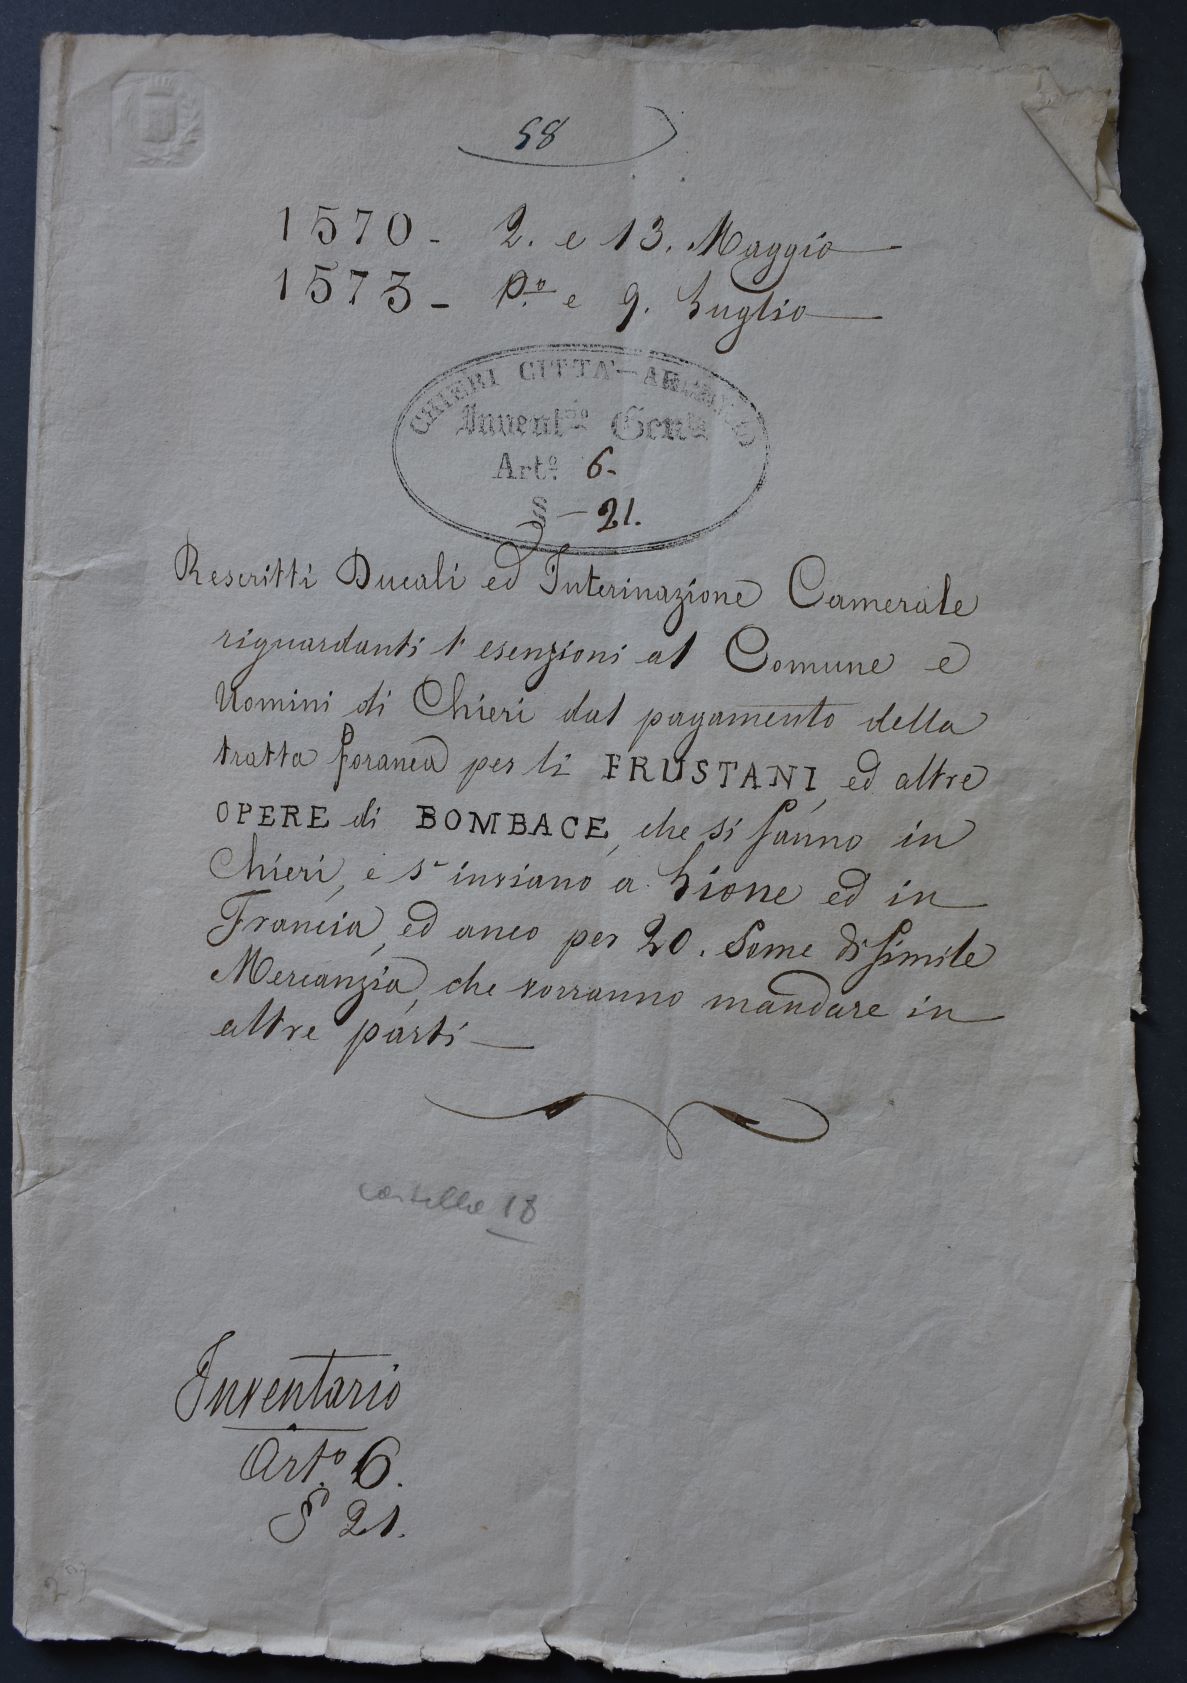 58
1570 - 2. e 13. Maggio
1573 - P.º e 9. Luglio
CHIERI CITTA' - ARCHIVIO
Invent.rio Gen.le
Art.º 6.
§ - 21.
Rescritti Ducali ed Interinazione Camerale
riguardanti l'esenzioni al Comune e
Uomini di Chieri dal pagamento della
tratta foranea per li FRUSTANI, ed altre
OPERE di BOMBACE, che si fanno in
Chieri, e s'inviano a Lione ed in
Francia, ed anco per 20. Some di simile
Mercanzia, che vorranno mandare in
altre parti
cartella 18
Inventario
Art.º 6.
§ 21.